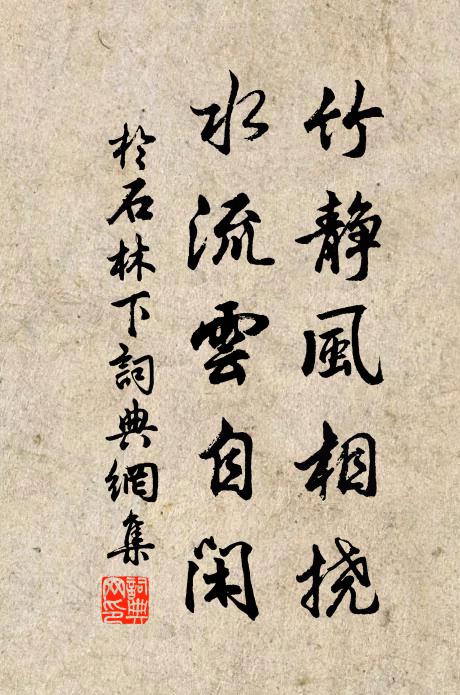 竹静風相挠
水流雲自闲
於石林下詞典網集
詞典網印